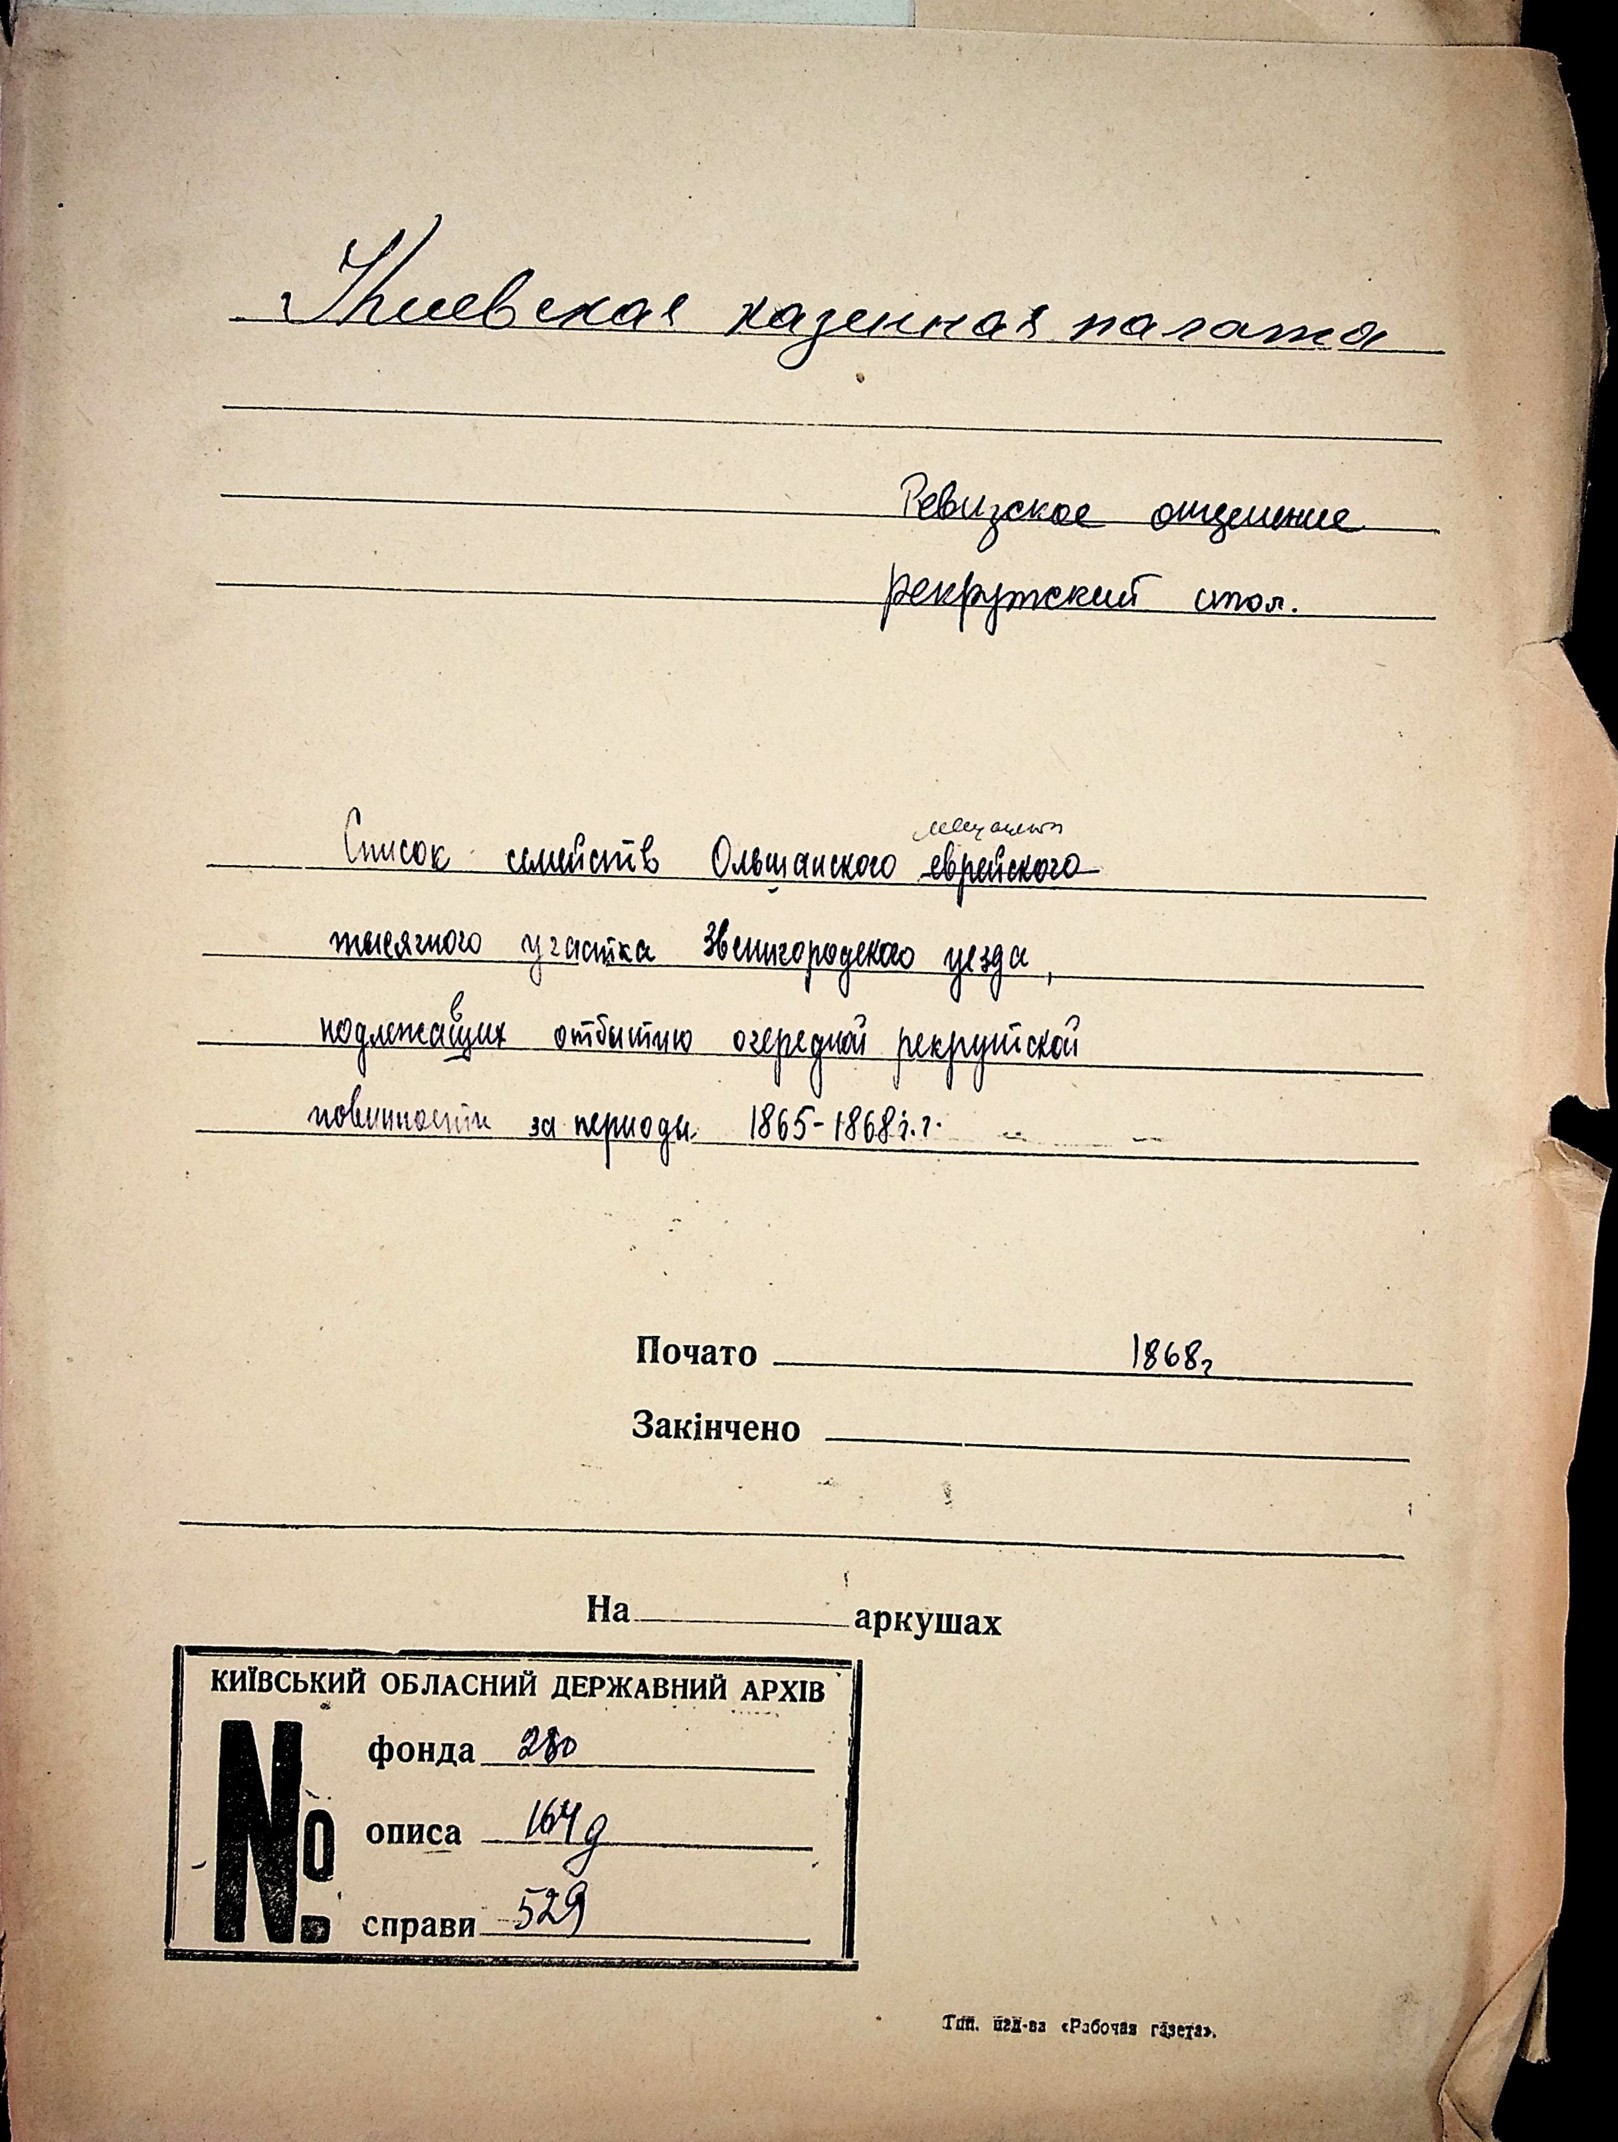 Киевская казенная палата
Ревизское отделение
рекрутский стол.
мещанск
Список семейств Ольшанского еврейского
тысячного участка Звенигородского уезда,
в
подлежащих отбытию очередной рекрутской
повинности за периоды 1865-1868г.г.
Почато 1868г
Закінчено
На аркушах
КИЇВСЬКИЙ ОБЛАСНИЙ ДЕРЖАВНИЙ АРХІВ
№ фонда 280
описа 164д
справи 529
Тип. изд-ва «Рабочая газета».